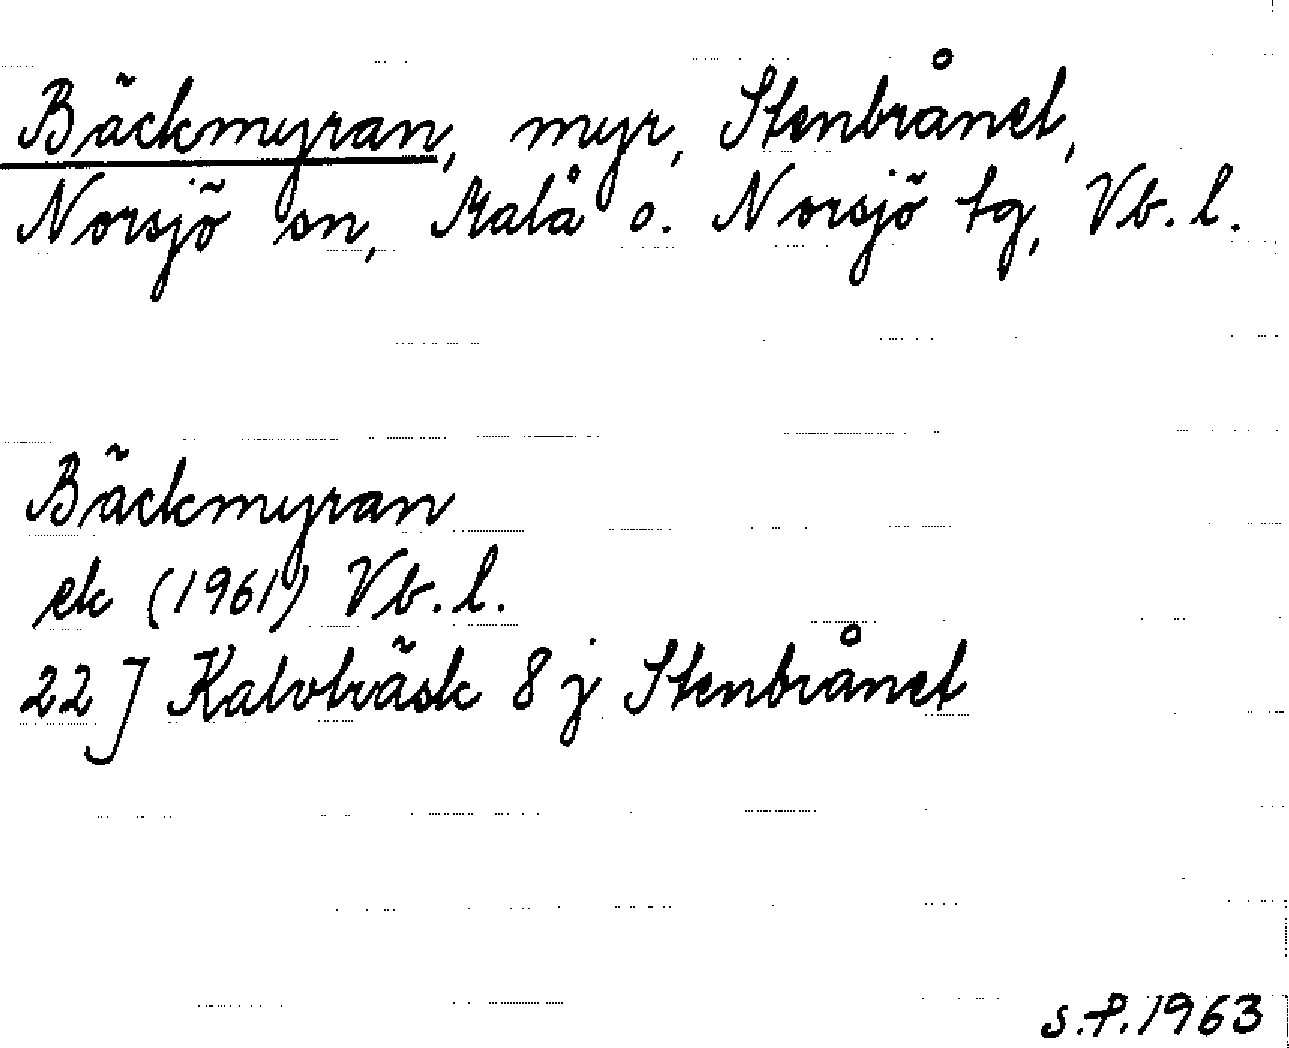 Bäckmyran, myr, Stenbrånet,
Norsjö sn, Malå o. Norsjö tg, Vb. l.
Bäckmyran
ek (1961) Vb. l.
22 J Kalvträsk 8 j Stenbrånet
S.P. 1963